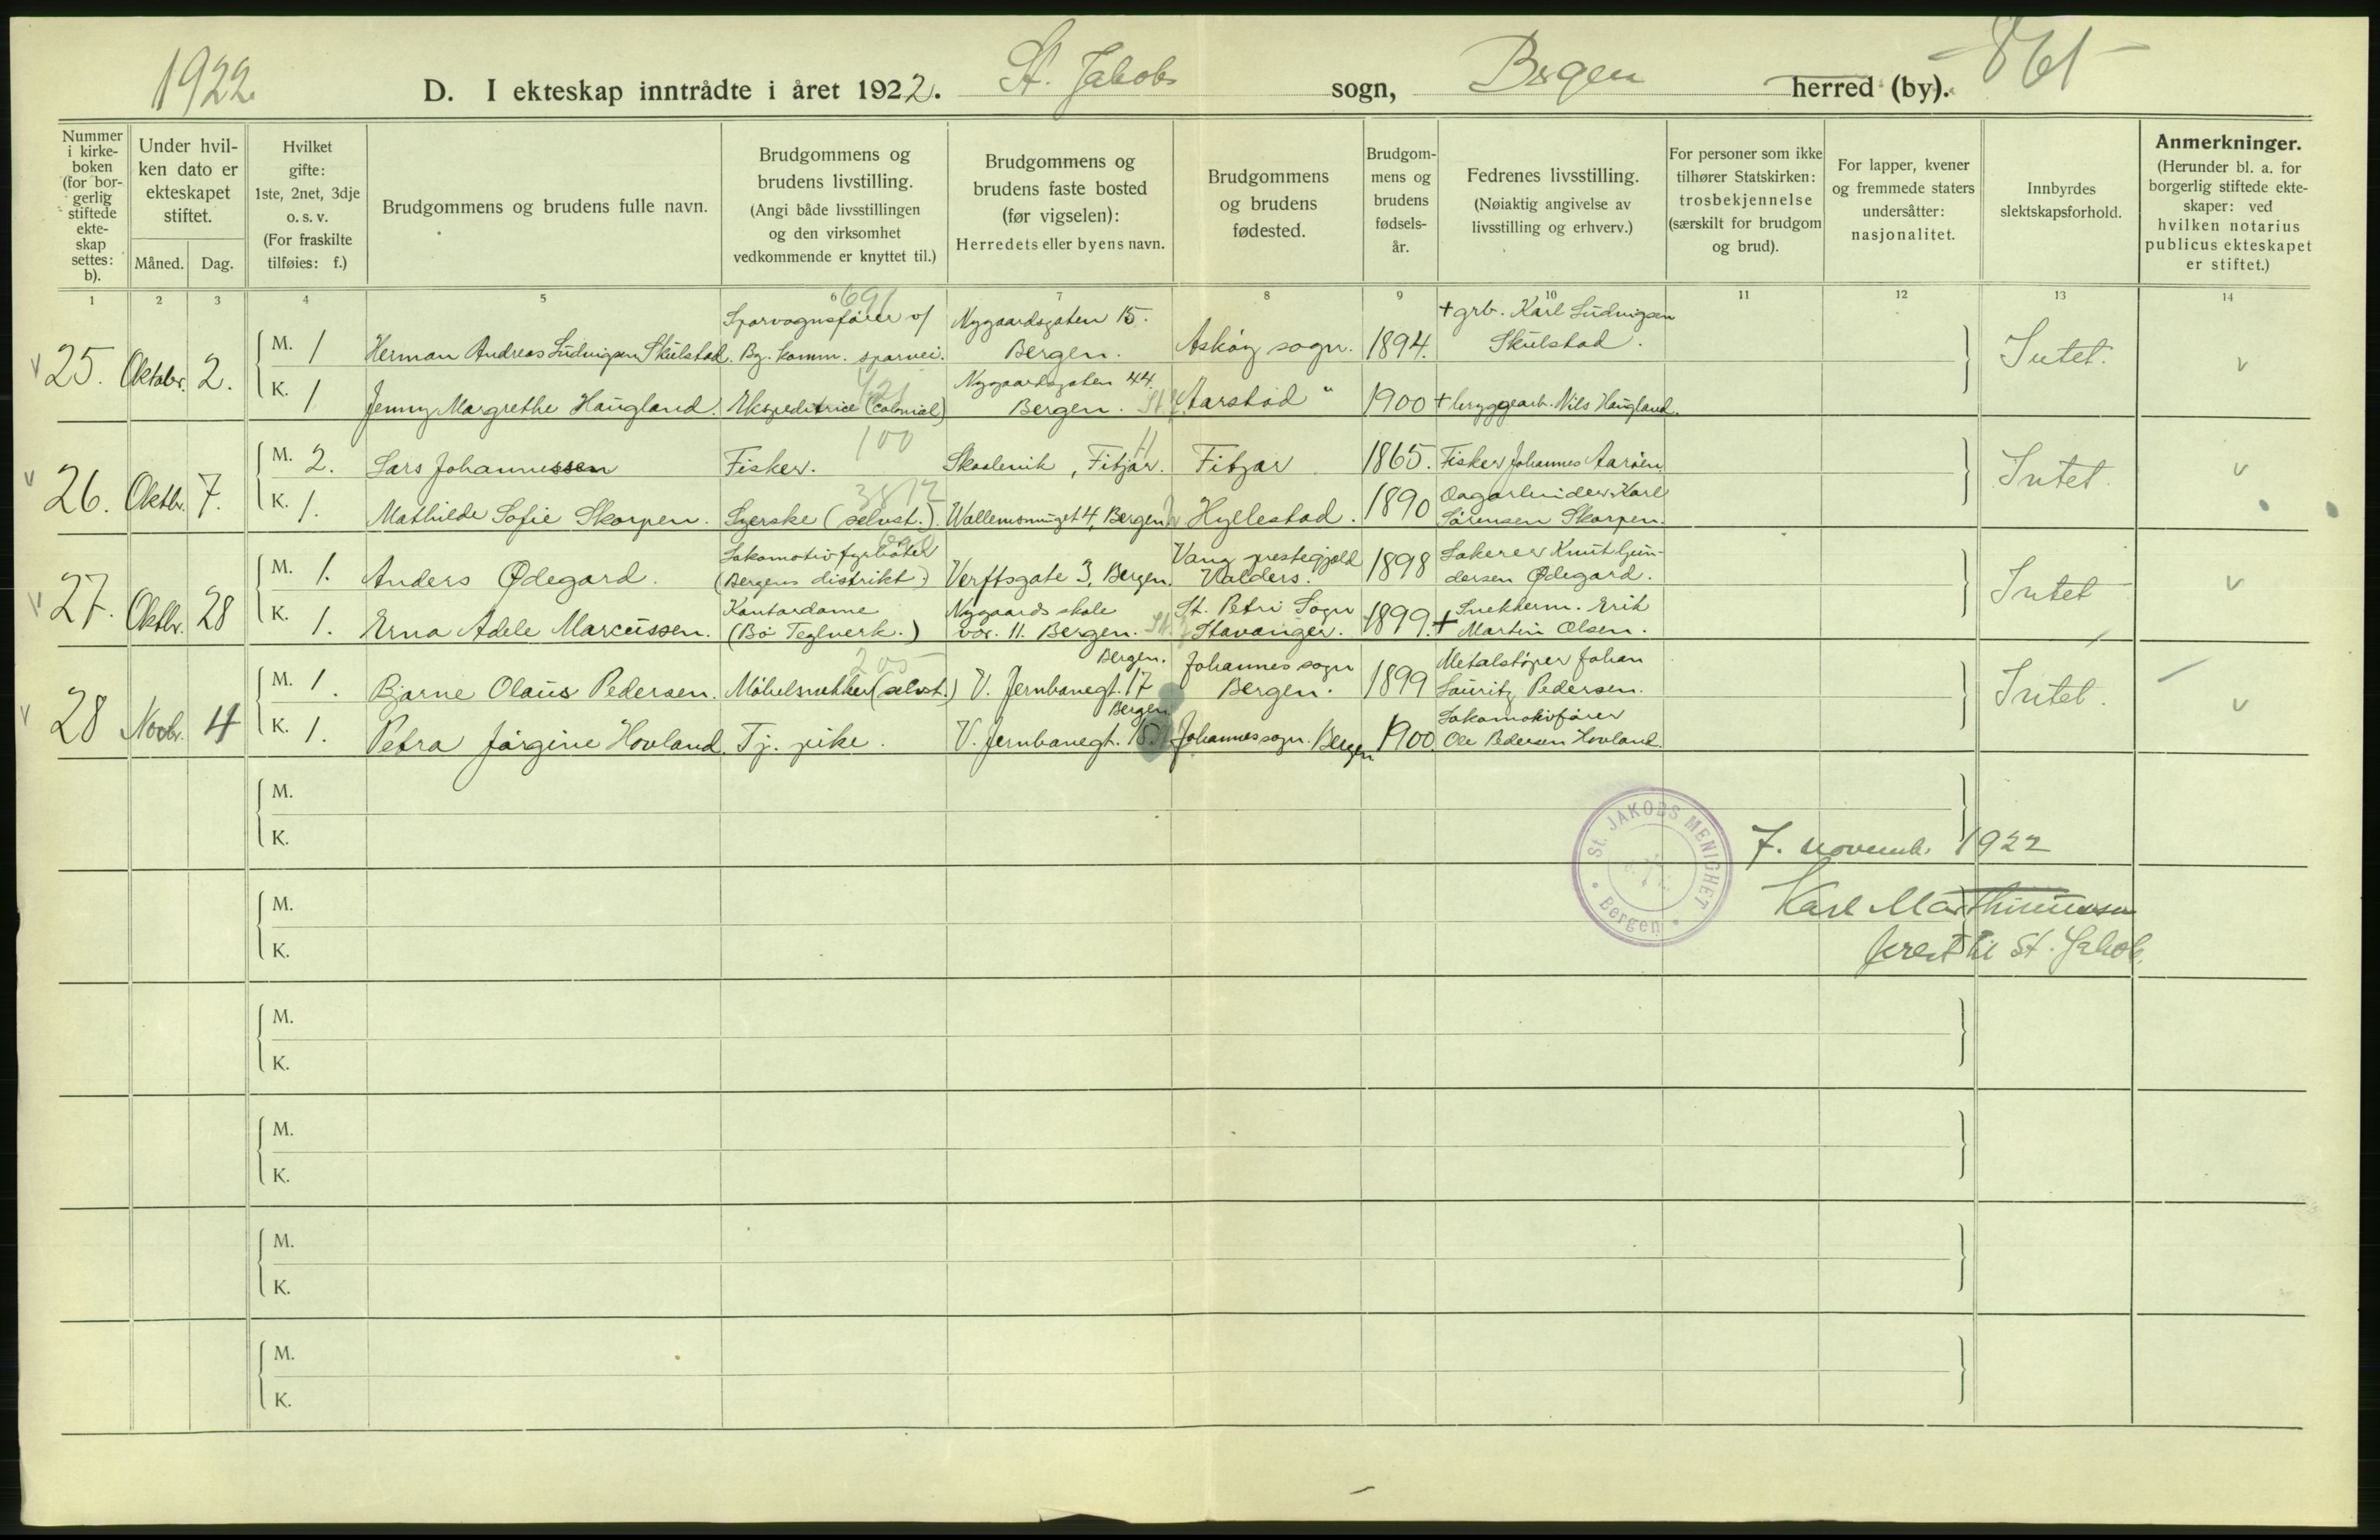 1922
D. I ekteskap inntrådte i året 1922. St. Jakobs sogn, Bergen herred (by). 861
Nummer i kirkeboken (for borgerlig stiftede ekteskap settes: b).
Under hvilken dato er ekteskapet stiftet.
Måned. Dag.
Hvilket gifte: 1ste, 2net, 3dje o. s. v. (For fraskilte tilføies: f.)
Brudgommens og brudens fulle navn.
Brudgommens og brudens livstilling. (Angi både livsstillingen og den virksomhet vedkommende er knyttet til.)
Brudgommens og brudens faste bosted (før vigselen): Herredets eller byens navn.
Brudgommens og brudens fødested.
Brudgommens og brudens fødselsår.
Fedrenes livsstilling. (Nøiaktig angivelse av livsstilling og erhverv.)
For personer som ikke tilhører Statskirken: trosbekjennelse (særskilt for brudgom og brud).
For lapper, kvener og fremmede staters undersåtter: nasjonalitet.
Innbyrdes slektskapsforhold.
Anmerkninger. (Herunder bl. a. for borgerlig stiftede ekteskaper: ved hvilken notarius publicus ekteskapet er stiftet.)
1 2 3 4 5 6 7 8 9 10 11 12 13 14
25. Oktober. 2. M. 1 Herman Andreas Ludvigsen Skulstad. Sporvognsfører v/ Bg. komm. sporvei. 691 Nygaardsgaten 15. Bergen. Askøy sogn. 1894. + grb. Karl Ludvigsen Skulstad. Intet.
K. 1 Jenny Margrethe Haugland. Ekspeditrice (Colonial) 421 Nygaardsgaten 44. Bergen. Aarstad " 1900 + bryggearb. Nils Haugland.
26. Oktbr. 7. M. 2. Lars Johannessen Fisker. 100 Skaalevik, Fitjar. Fitjar 1865. Fisker Johannes Aarøen Intet.
K. 1. Mathilde Sofie Skorpen. Syerske (selvst.). Wallemsmuget 4, Bergen Hyllestad. 1890 Dagarbeider Karl Sørensen Skorpen.
27. Oktbr. 28 M. 1. Anders Ødegard. Lokomotivfyrbøter (Bergens distrikt) Verftsgate 3, Bergen. Vang prestegjeld Valders. 1898 Snekker Knut Gundersen Ødegard. Intet
K. 1. Erna Adele Marcussen. Kontordame (Bø Teglverk.) Nygaards skole vor. 11. Bergen. St. Petri Sogn Stavanger. 1899. + Snekkerm. Erik Martin Olsen.
28 Novbr. 4 M. 1. Bjarne Olaus Pedersen. Møbelsnekker (selvst.) 205 V. Jernbanegt. 17 Bergen. Johannes sogn Bergen. 1899 Metalstøper Johan Lauritz Pedersen. Intet.
K. 1. Petra Jørgine Hovland. Tj. pike. V. Jernbanegt. 15 Bergen Johannes sogn. Bergen 1900 Lokomotivfører Ole Pedersen Hovland.
M.
K.
St. JAKOBS MENIGHET Bergen
7. novemb. 1922
Karl Marthinussen
prest til St. Jakob.
M.
K.
M.
K.
M.
K.
M.
K.
M.
K.